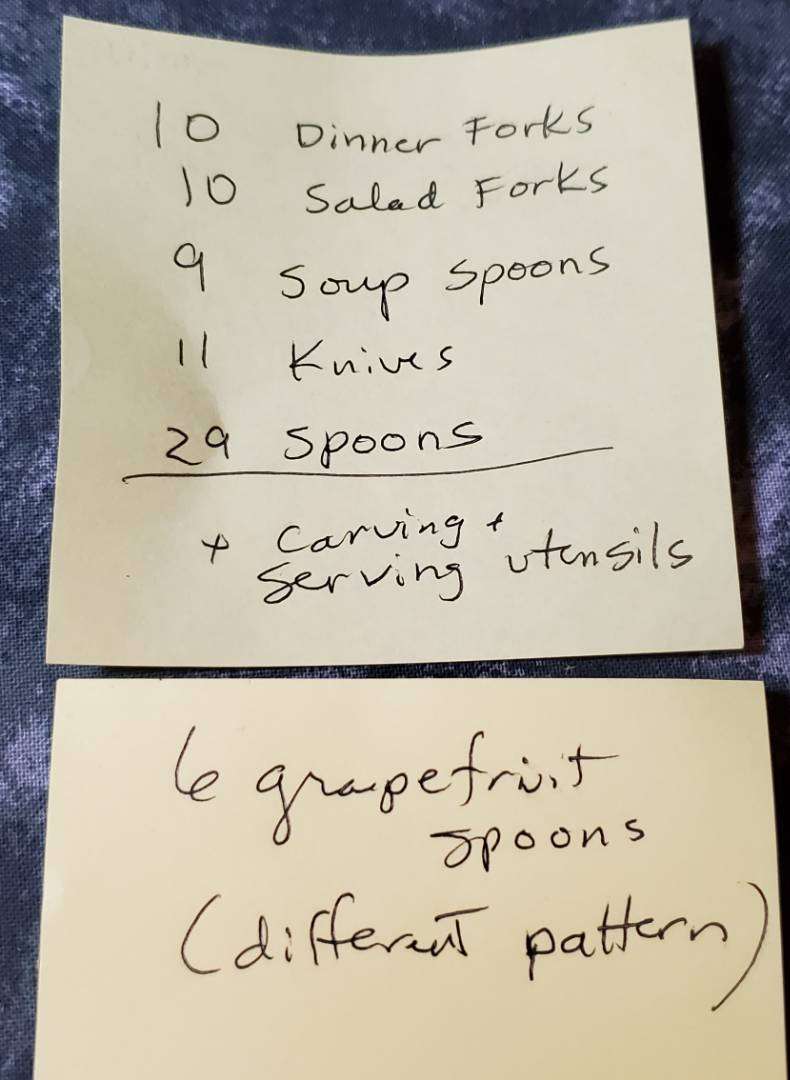 10 Dinner Forks
10 Salad Forks
9 Soup Spoons
11 Knives
29 Spoons
+ carving +
serving utensils
6 grapefruit
spoons
(different pattern)